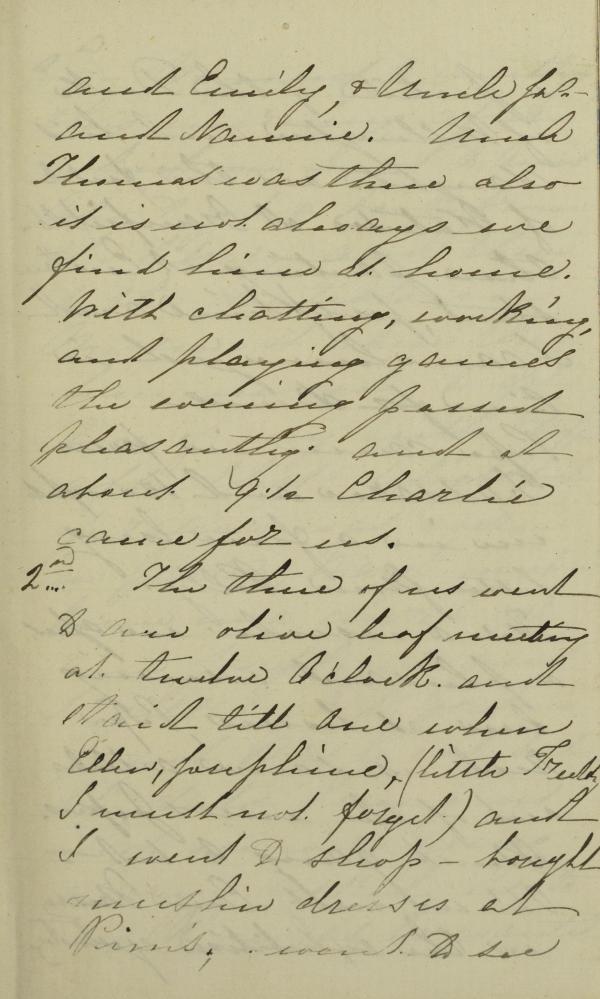 and Emily, & Uncle Jos-
and Nannie. Uncle
Thomas was there also
it is not always we
find him at home.
With chatting, working,
and playing games
the evening passed
pleasantly. and at
about 9 1/2 Charlie
came for us.
2nd The three of us went
to our olive leaf meeting
at twelve O'clock. and
staid till one when
Ellen, Josephine, (little Freddy
I must not forget) and
I went to shop - bought
muslin dresses at
Pim's, went to see